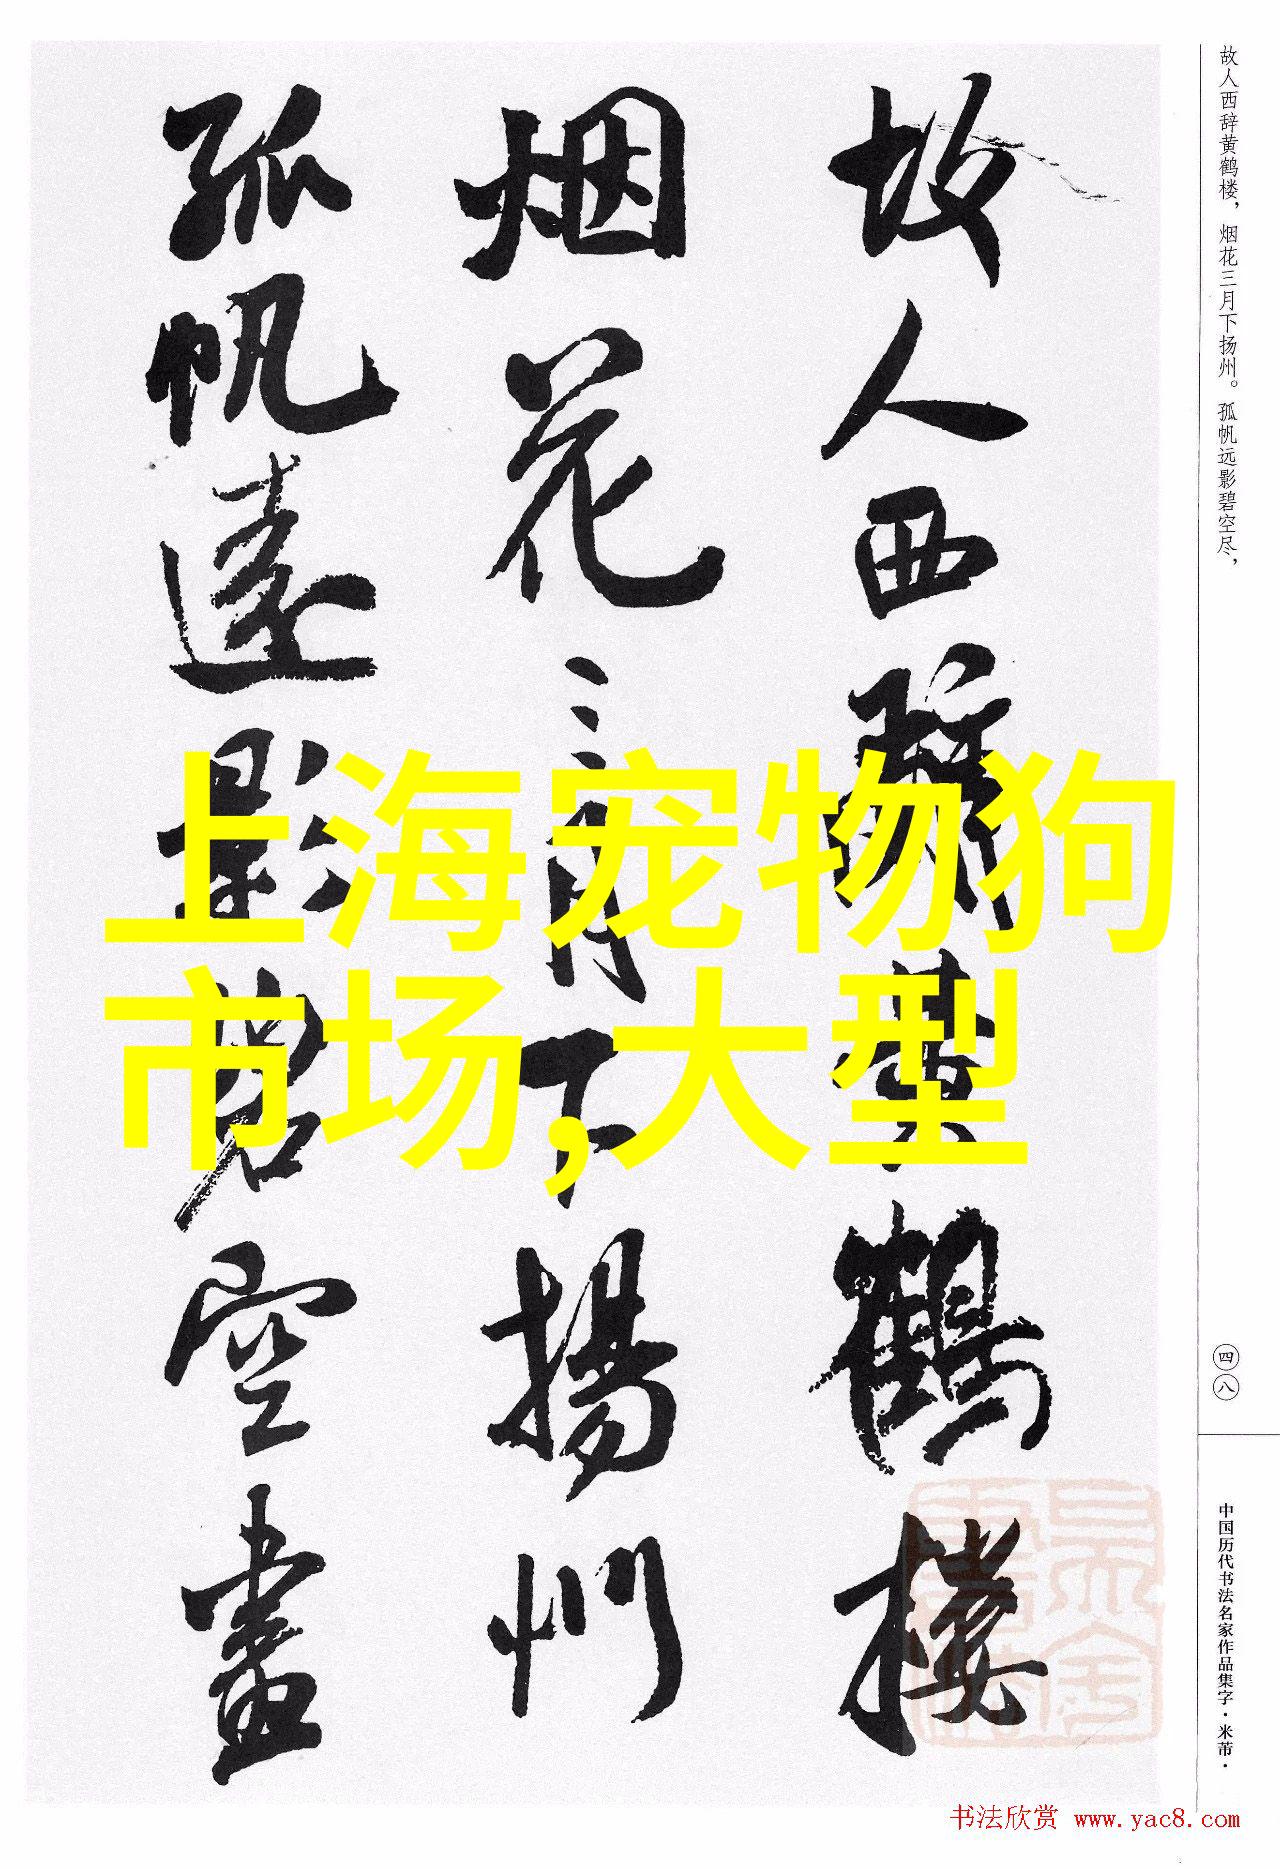 故人西辞黄鹤楼，烟花三月下扬州。孤帆远影碧空尽，
故人西辭黄鹤楼
烟花三月下揚州
孤帆遠影碧空盡
上海宠物狗
市场,大型
四八
中国历代书法名家作品集字·米芾·
书法欣赏 www.yac8.com